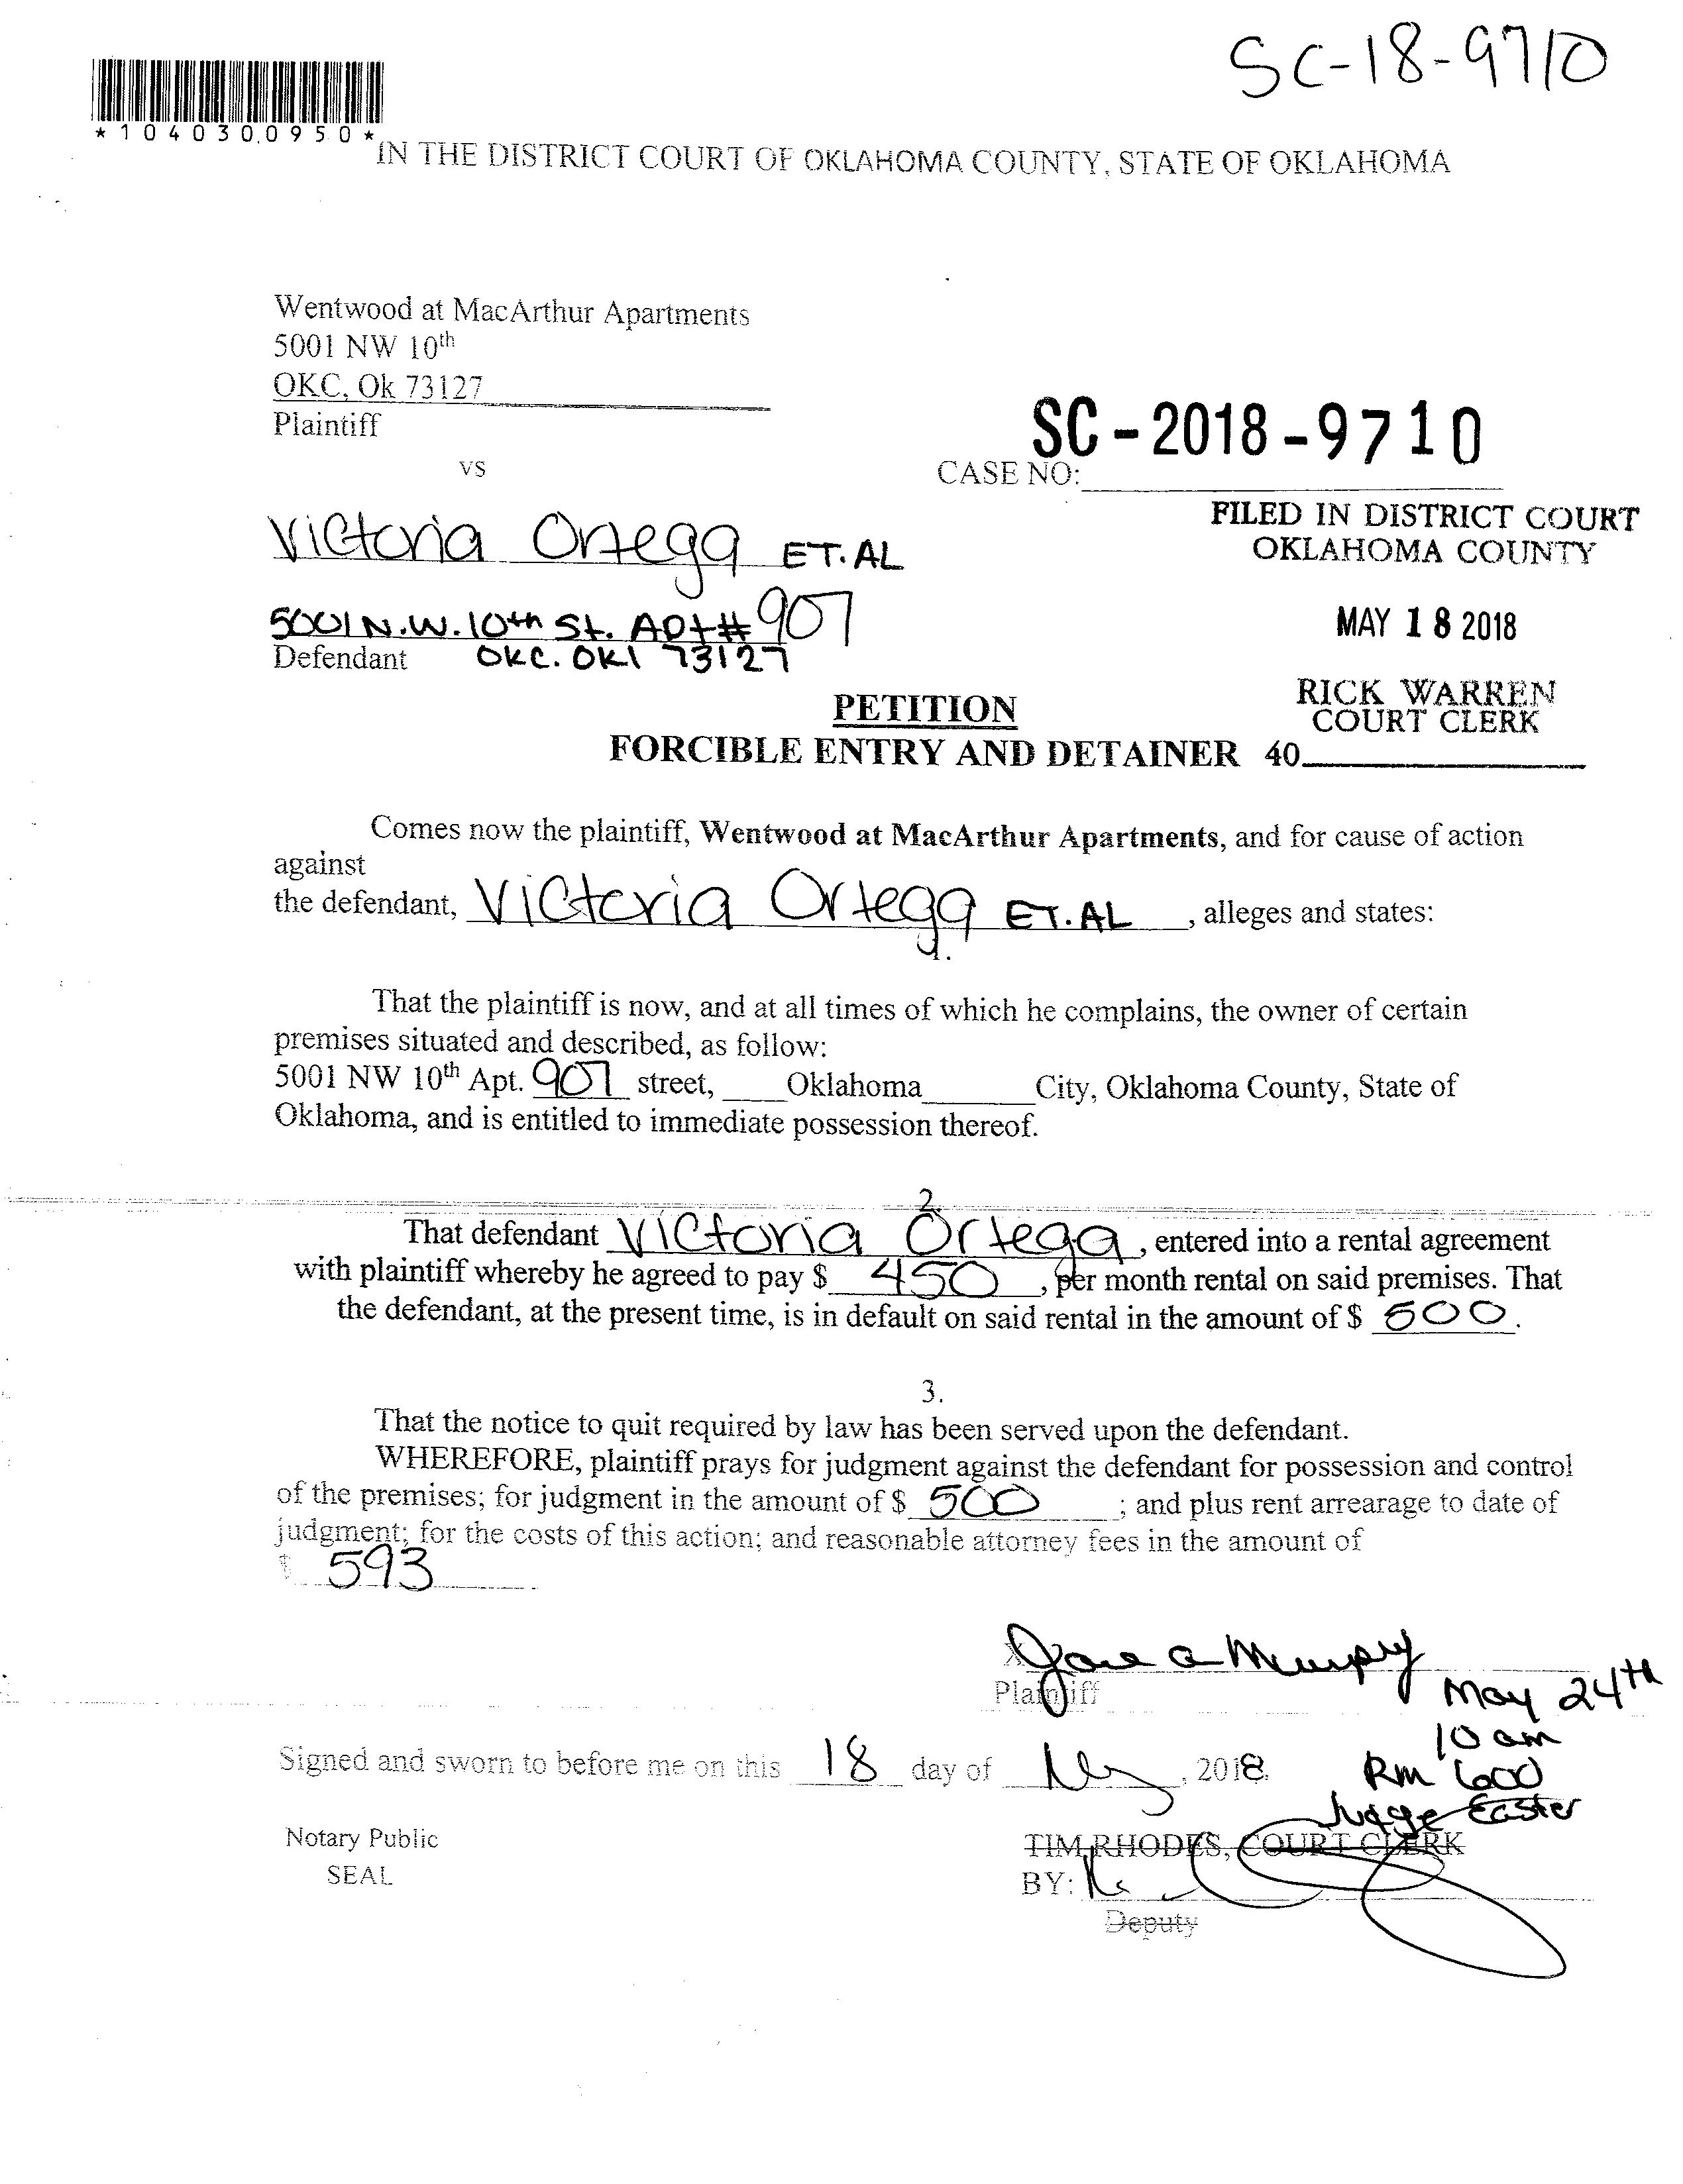 SC-18-9710
*1040300950*
IN THE DISTRICT COURT OF OKLAHOMA COUNTY, STATE OF OKLAHOMA
Wentwood at MacArthur Apartments
5001 NW 10th
OKC, Ok 73127
Plaintiff
vs
SC-2018-9710
CASE NO:
FILED IN DISTRICT COURT
OKLAHOMA COUNTY
Victoria Ortega ET.AL
5001 N.W. 10th St. Apt# 907
Defendant OKC. OKl 73127
MAY 18 2018
RICK WARREN
COURT CLERK
PETITION
FORCIBLE ENTRY AND DETAINER 40
Comes now the plaintiff, Wentwood at MacArthur Apartments, and for cause of action
against
the defendant, Victoria Ortega ET.AL , alleges and states:
1.
That the plaintiff is now, and at all times of which he complains, the owner of certain
premises situated and described, as follow:
5001 NW 10th Apt. 907 street, Oklahoma City, Oklahoma County, State of
Oklahoma, and is entitled to immediate possession thereof.
2.
That defendant Victoria Ortega, entered into a rental agreement
with plaintiff whereby he agreed to pay $ 450, per month rental on said premises. That
the defendant, at the present time, is in default on said rental in the amount of $ 500.
3.
That the notice to quit required by law has been served upon the defendant.
WHEREFORE, plaintiff prays for judgment against the defendant for possession and control
of the premises; for judgment in the amount of $ 500 ; and plus rent arrearage to date of
judgment; for the costs of this action; and reasonable attorney fees in the amount of
$ 593
Plaintiff
May 24th
10 am
Rm 600
Judge Easter
Signed and sworn to before me on this 18 day of May, 2018.
Notary Public
SEAL
TIM RHODES, COURT CLERK
BY:
Deputy